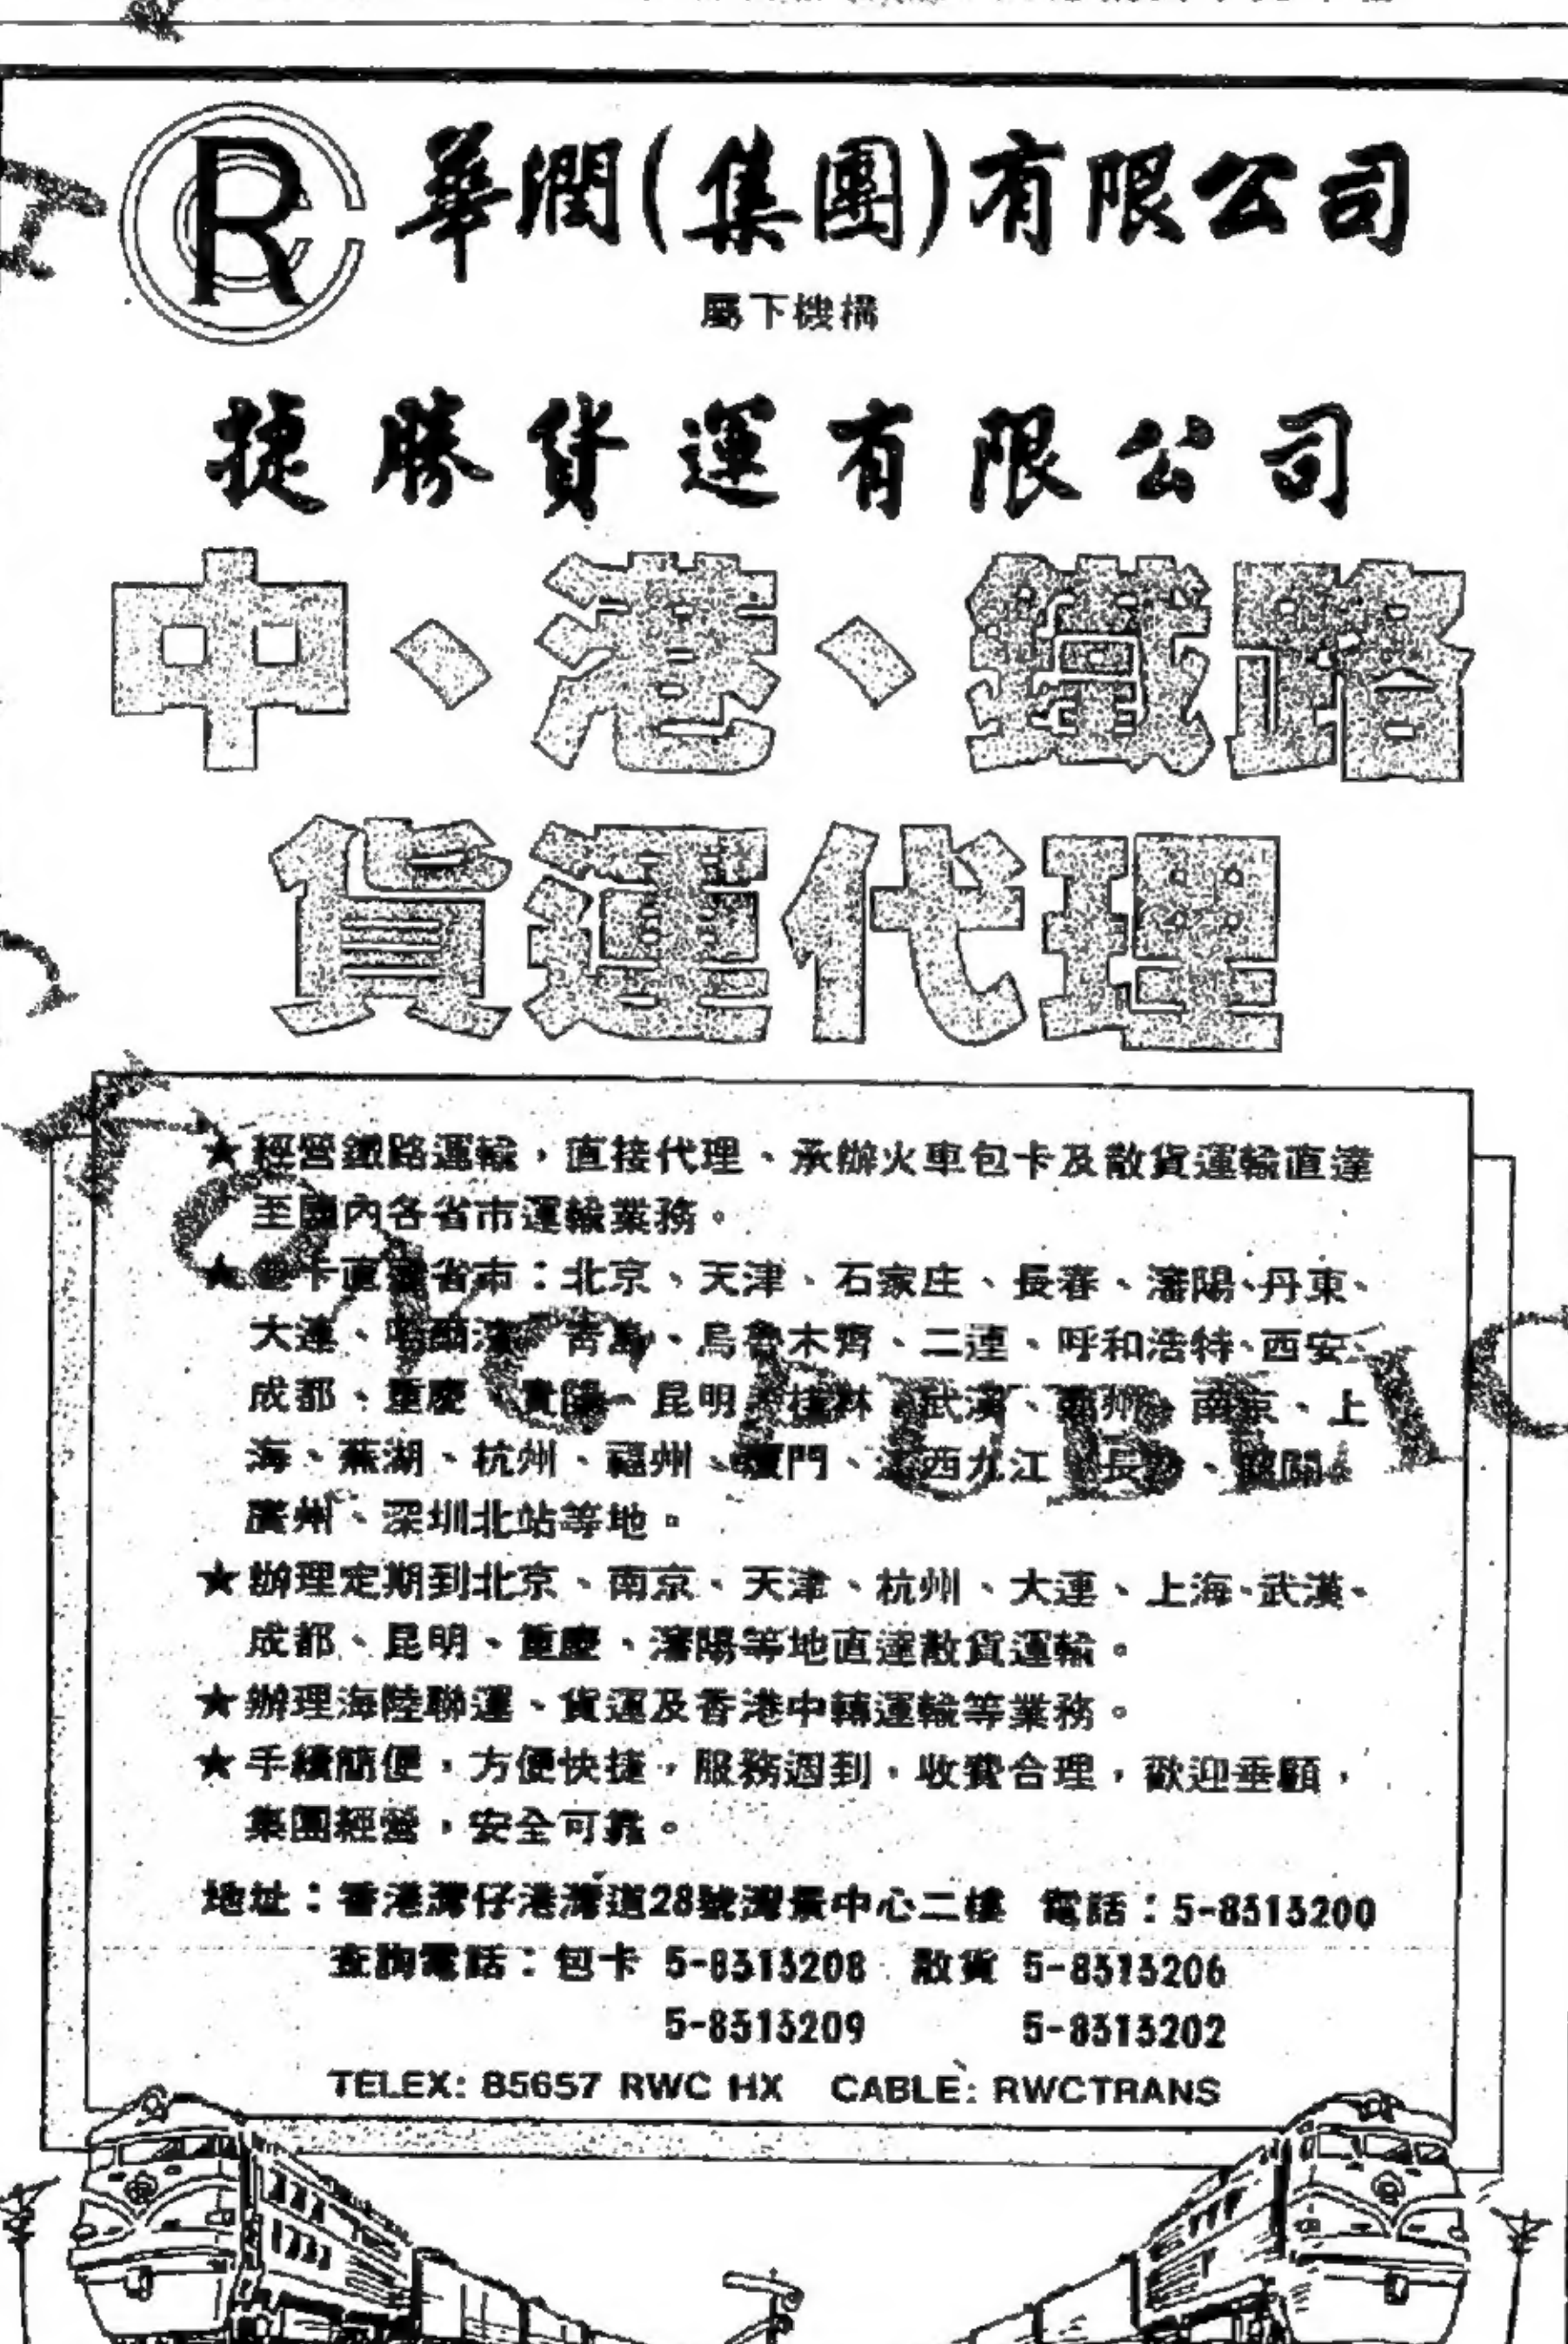 華潤(集團)有限公司
屬下機構
捷勝貨運有限公司
中、港、鐵路
貨運代理
★經營鐵路運輸，直接代理、承辦火車包卡及散貨運輸直達
至國內各省市運輸業務。
★包卡直達省市：北京、天津、石家庄、長春、瀋陽、丹東、
大連、哈爾濱、青島、烏魯木齊、二連、呼和浩特、西安、
成都、重慶、貴陽、昆明、桂林、武漢、鄭州、南京、上
海、蕪湖、杭州、福州、廈門、江西九江、長沙、韶關、
廣州、深圳北站等地。
★辦理定期到北京、南京、天津、杭州、大連、上海、武漢、
成都、昆明、重慶、瀋陽等地直達散貨運輸。
★辦理海陸聯運、貨運及香港中轉運輸等業務。
★手續簡便，方便快捷，服務週到，收費合理，歡迎垂顧，
集團經營，安全可靠。
地址：香港灣仔港灣道28號灣景中心二樓 電話：5-8313200
查詢電話：包卡 5-8313208 散貨 5-8313206
5-8313209 5-8313202
TELEX: 85657 RWC HX CABLE: RWCTRANS
PUBLIC